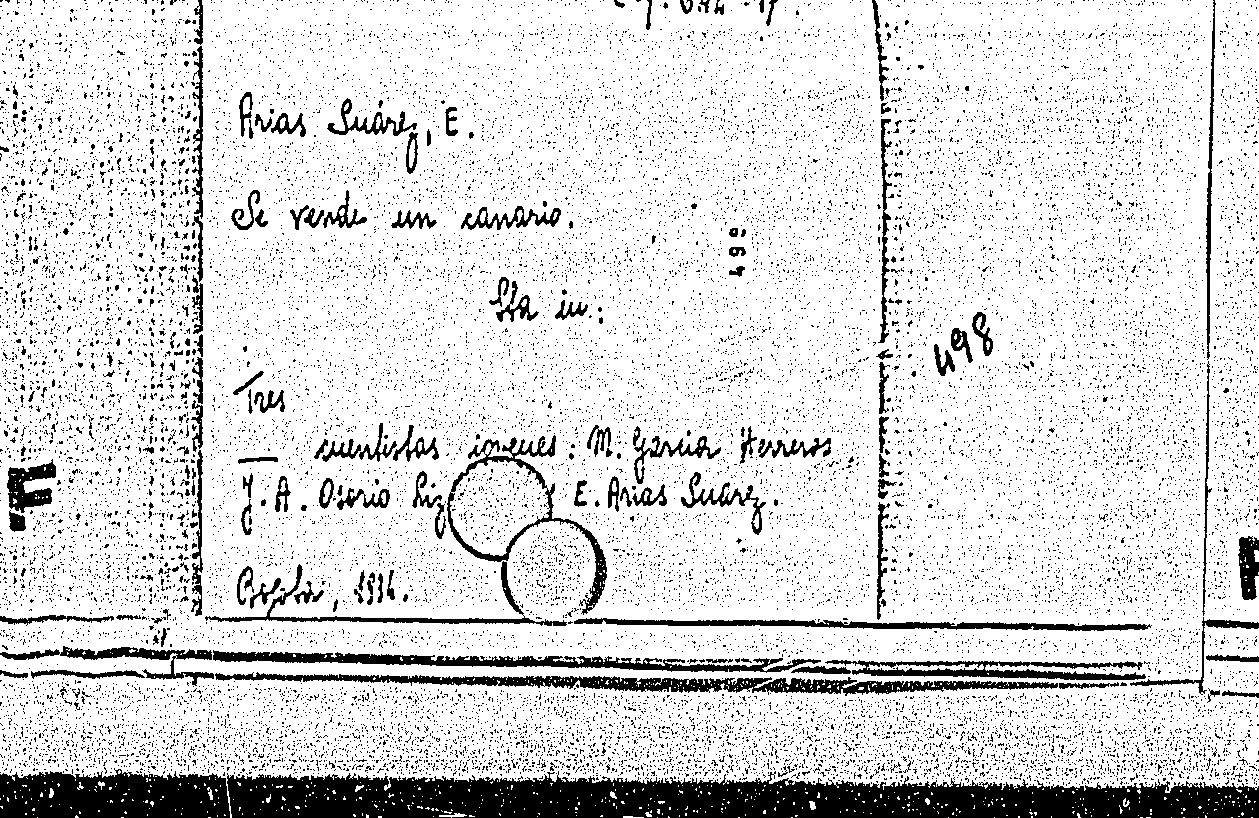 Arias Suárez, E.
Se vende un canario.
498
Sta in:
498
Tres
— cuentistas jovenes: M. García Herreros
J. A. Osorio Liz E. Arias Suárez.
Bogotá, 1914.